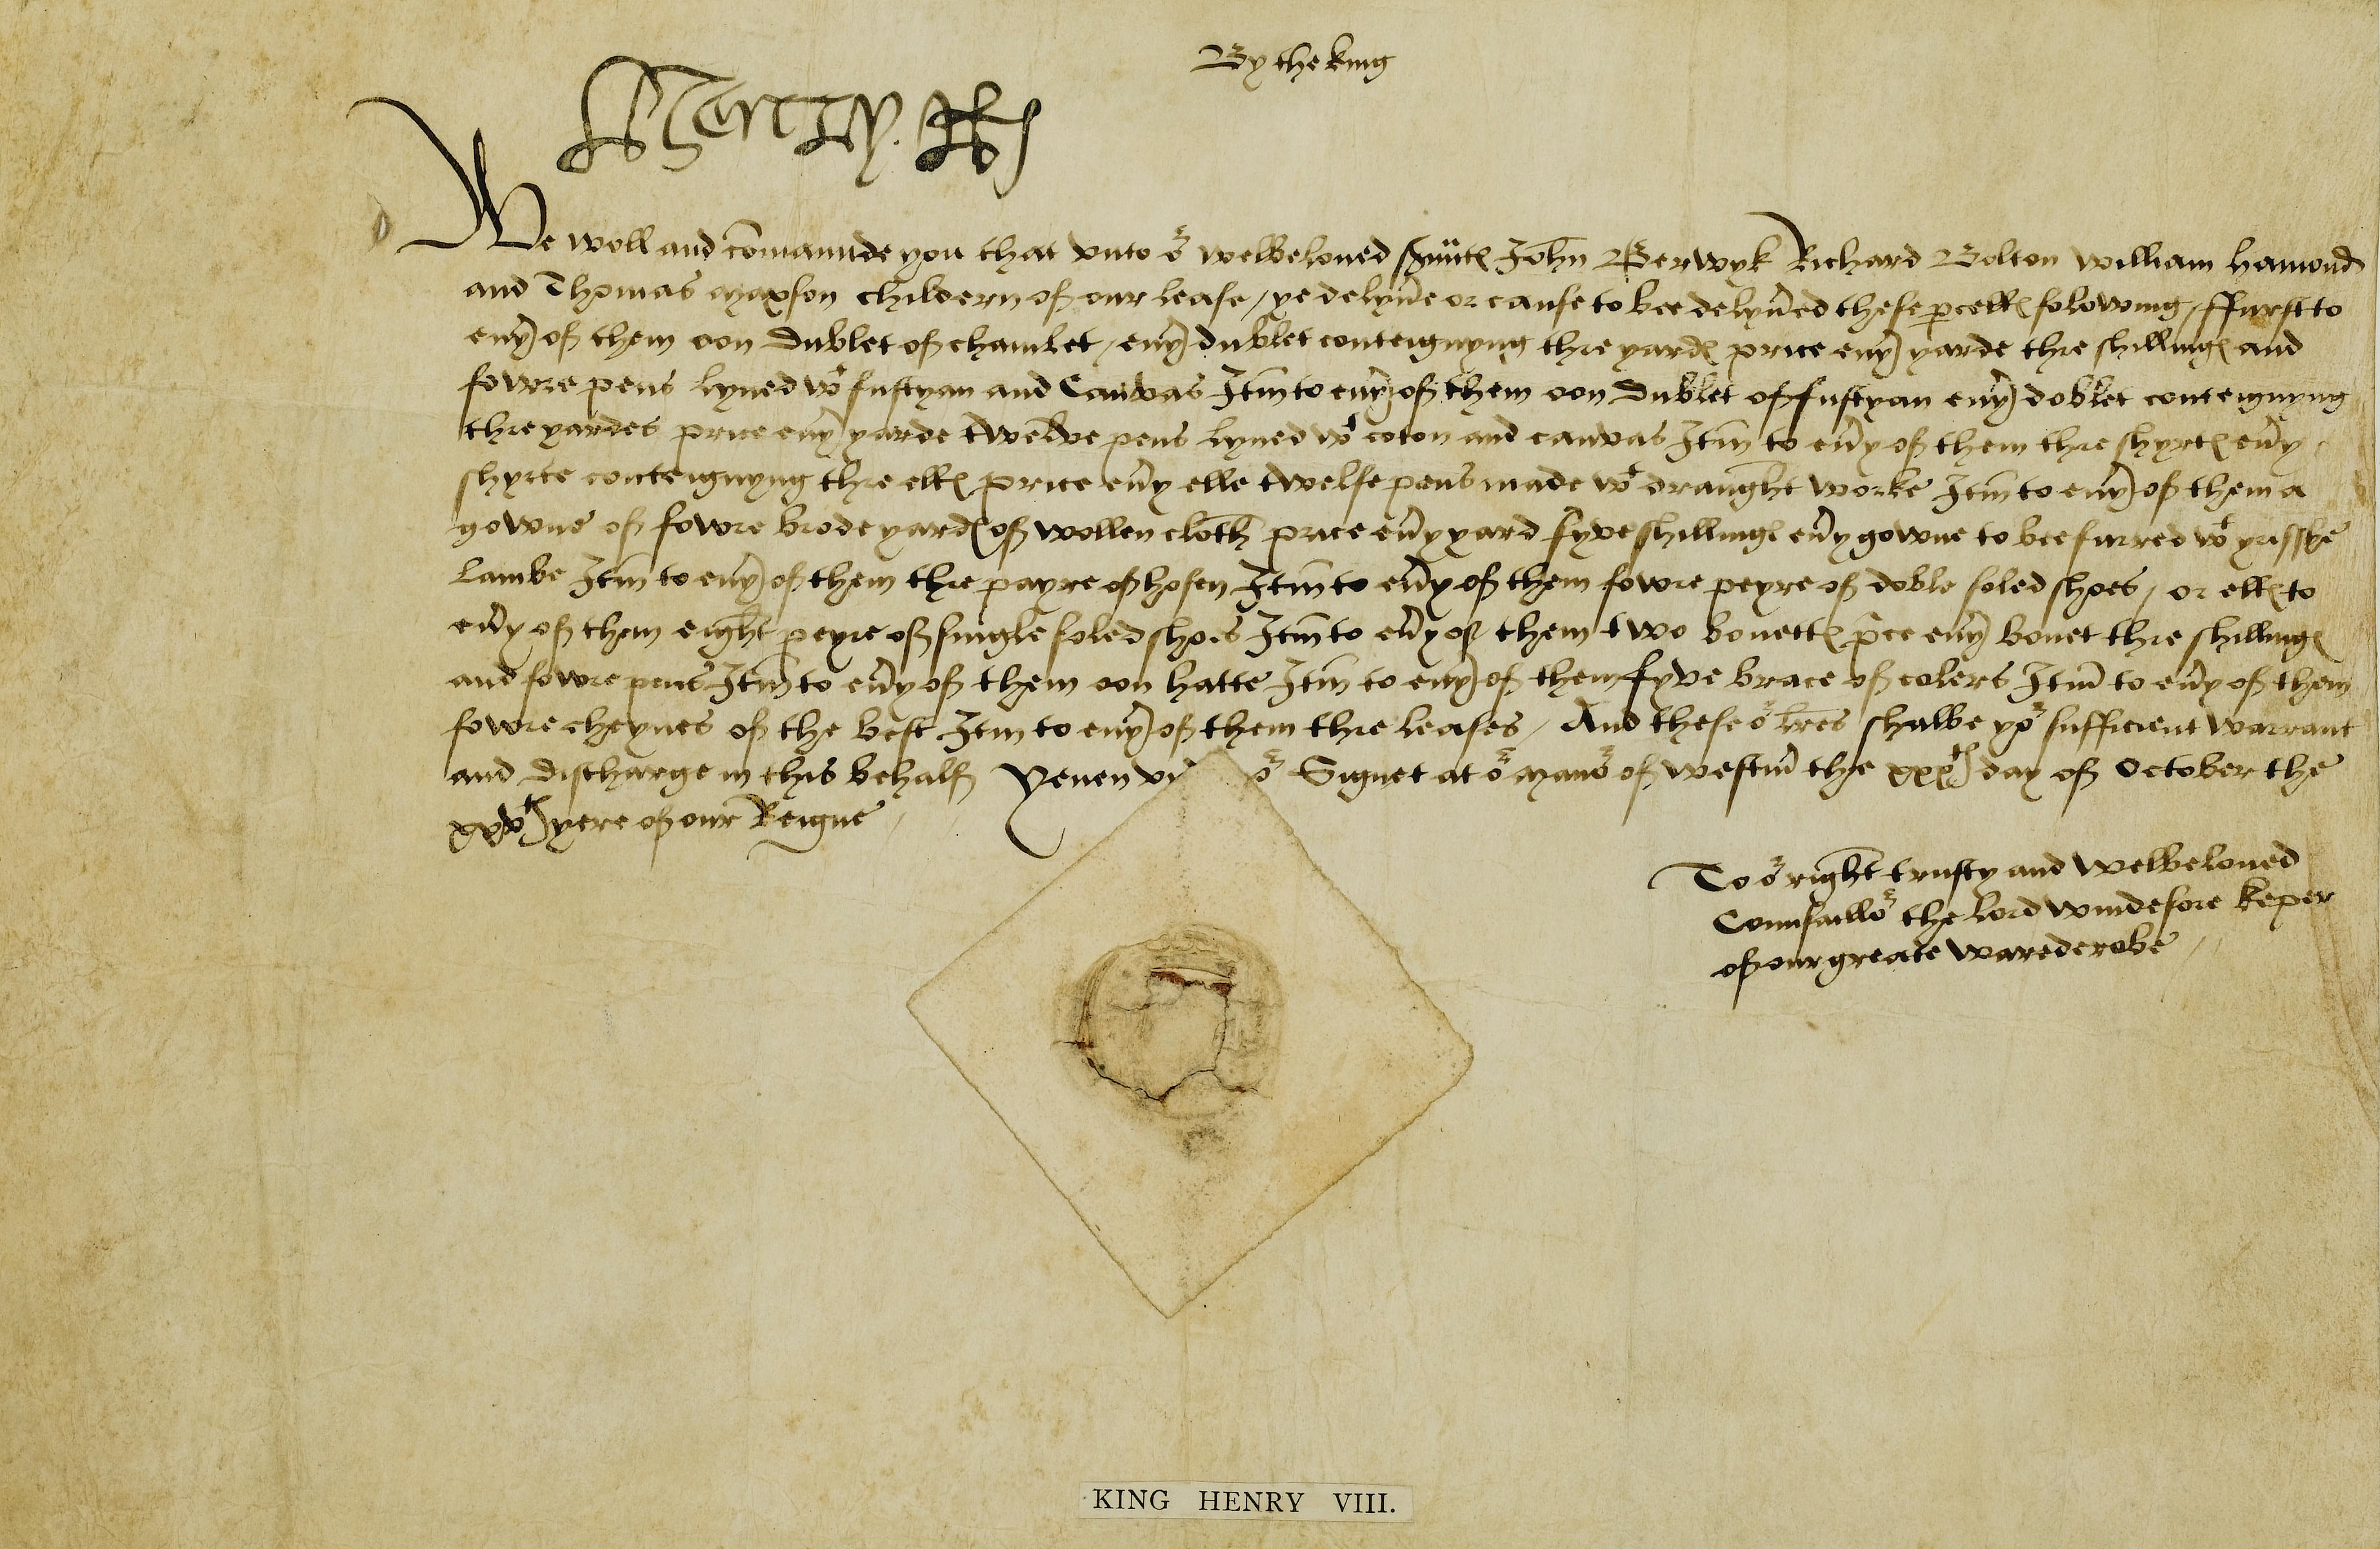 By the king
Henry R
We woll and comaunde you that vnto or welbeloued John Berwyk Richard Bolton William hamond
and Thomas Maxson childern of our lease / ye delyue or cause to bee delyued these pcell folowing / ffurst to
euy of them oon dublet of chamlet / euy dublet conteignyng thre yard price euy yarde thre shilling and
fowre pens lyned wt fustyan and Canvas Itm to euy of them oon dublet of fustyan euy doblet conteignyng
thre yardes price euy yarde twelve pens lyned wt coton and canvas Itm to euy of them thre shyrt euy
shyrte conteignyng thre ell price euy elle twelfe pens made wt draught worke Itm to euy of them a
gowne of fowre brode yard of wollen cloth price euy yard fyve shilling euy gowne to bee furred wt yrisshe
lambe Itm to euy of them thre payre of hosen Itm to euy of them fowre peyre of doble soled shoes / or ell to
euy of them eight peyre of single soled shoes Itm to euy of them two bonett pce euy bonet thre shilling
and fowre pens Itm to euy of them oon hatte Itm to euy of them fyve brace of colers Itm to euy of them
fowre cheynes of the best Itm to euy of them thre leases / And these or lres shalbe yor sufficient warrant
and discharge in this behalf Yeuen or Signet at or Manor of westm the xxxth day of October the
xxvth yere of our Reigne /
To or right trusty and welbeloued
Counsaillor the lord windesore keper
of our greate warederobe //
KING HENRY VIII.